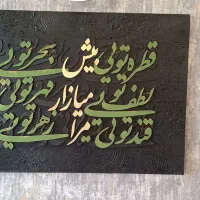 قطره تویی بیش بحر تویی
لطف تویی میازار قهر تویی
قند تویی مرا زهر تویی